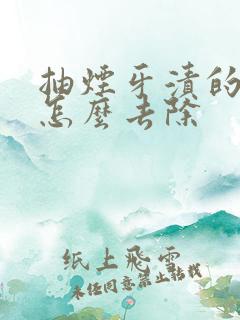 抽煙牙漬的
怎麼去除
纸上飛雲
未经同意禁止转载